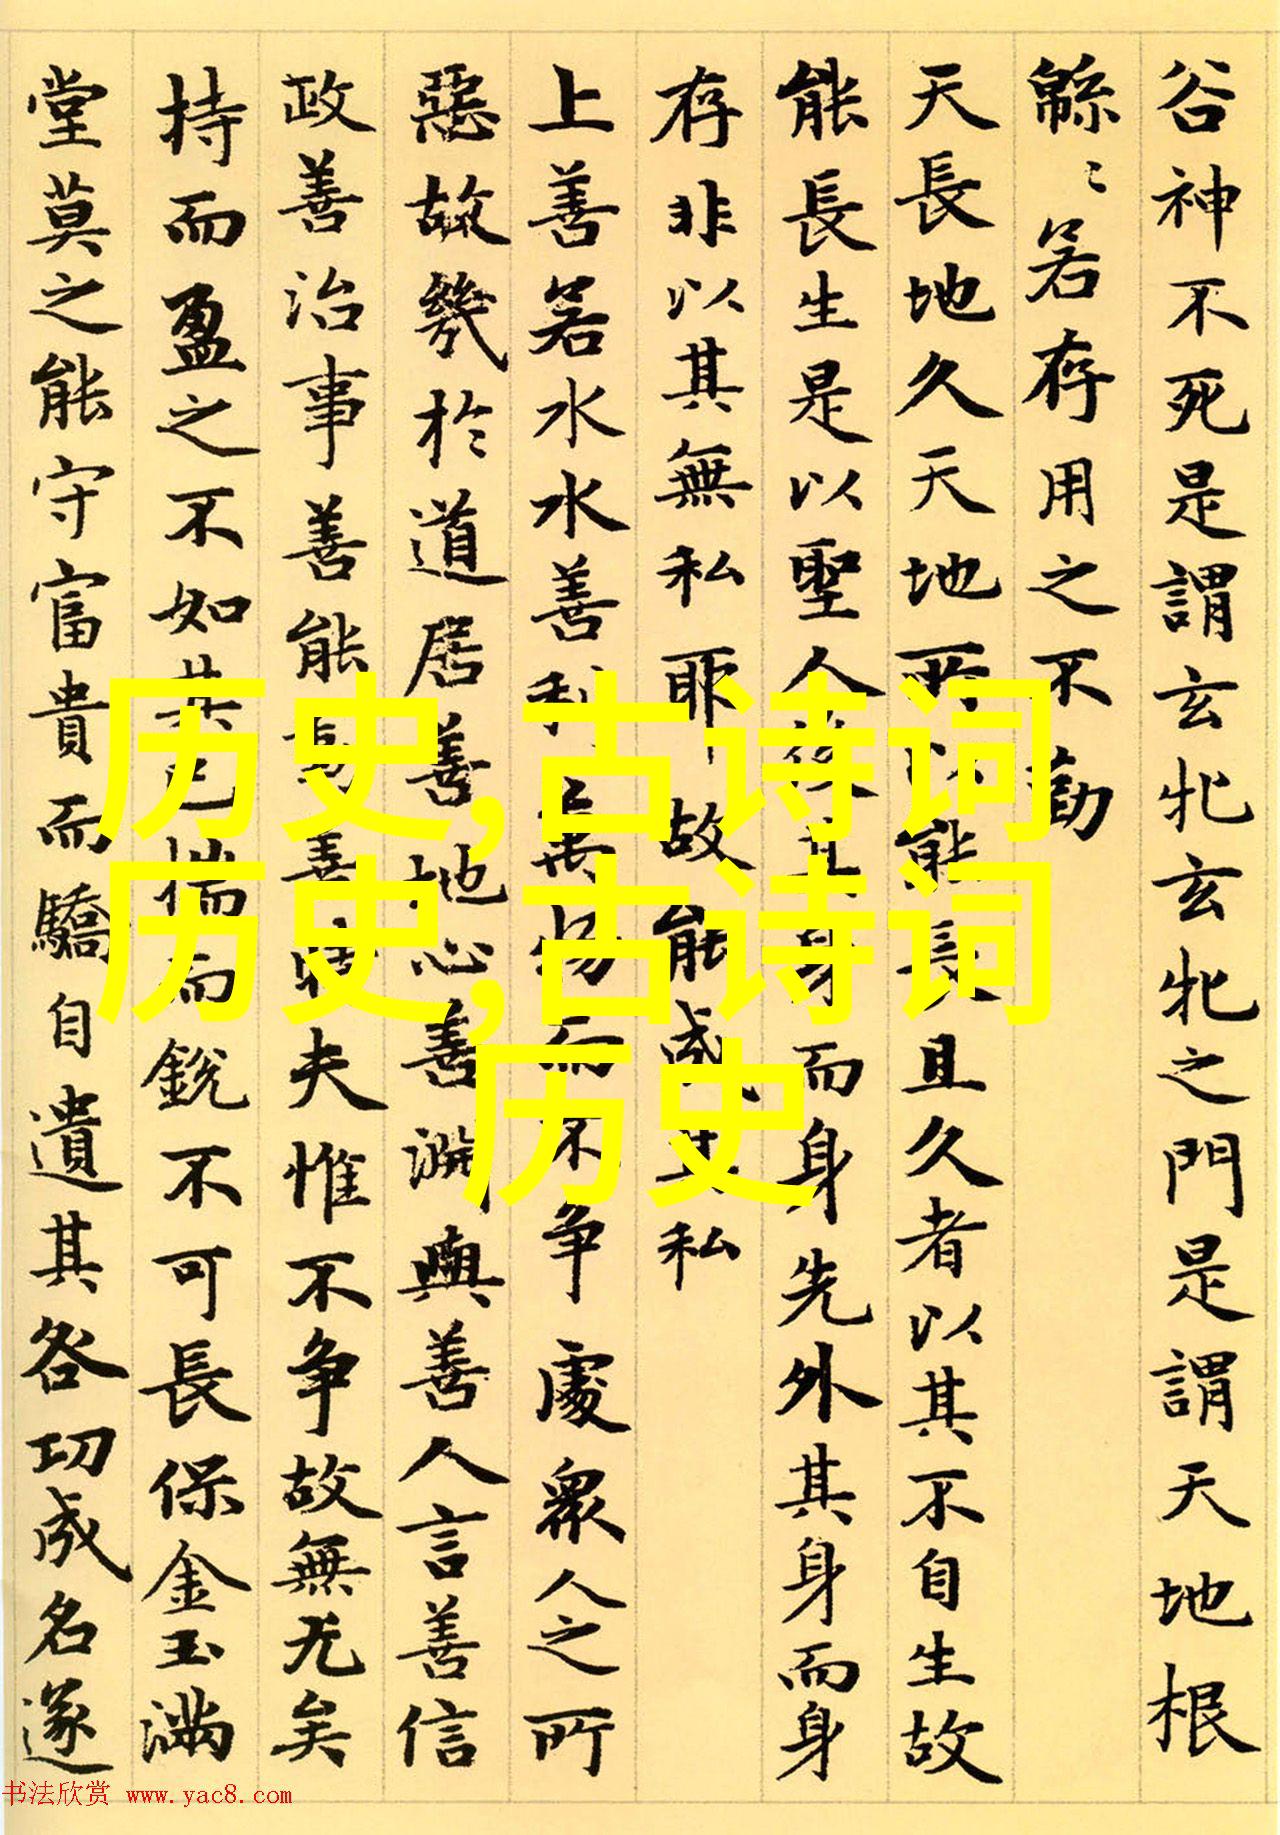 谷神不死是謂玄牝玄牝之門是謂天地根
緜〻若存用之不勤
天長地久天地所以能長且久者以其不自生故
能長生是以聖人後其身而身先外其身而身
存非以其無私耶故能成其私
上善若水水善利萬物而不争處衆人之所
惡故幾於道居善地心善淵與善人言善信
政善治事善能動善時夫惟不争故無尤矣
持而盈之不如其已揣而銳不可長保金玉滿
堂莫之能守富貴而驕自遺其咎功成名遂
历史,古诗词
历史,古诗词
历史
书法欣赏 www.yac8.com